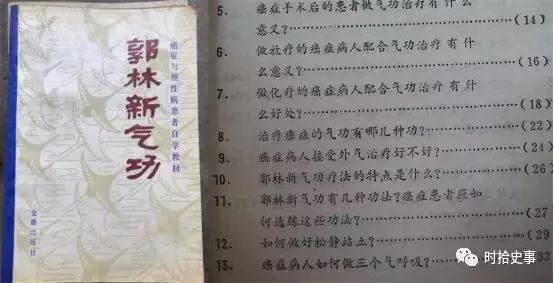 郭林新气功
癌症与慢性病患者自学教材
金盾出版社
5. 癌症手术后的患者做气功治疗有什么
意义?……………………(14)
6. 做放疗的癌症病人配合气功治疗 有 什
么意义?……………………(16)
7. 做化疗的癌症病人配合气功治疗 有 什
么好处?……………………(18)
8. 治疗癌症的气功有哪几种功?………(22)
9. 癌症病人接受外气治疗好不好?………(24)
10. 郭林新气功疗法的特点是什么?………(26)
11. 郭林新气功有几种功法?癌症患者应如
何选练这些功法?……………(27
12. 如何做好松静站立?……………(29
13. 癌症病人如何做三个气呼吸?………32
时拾史事